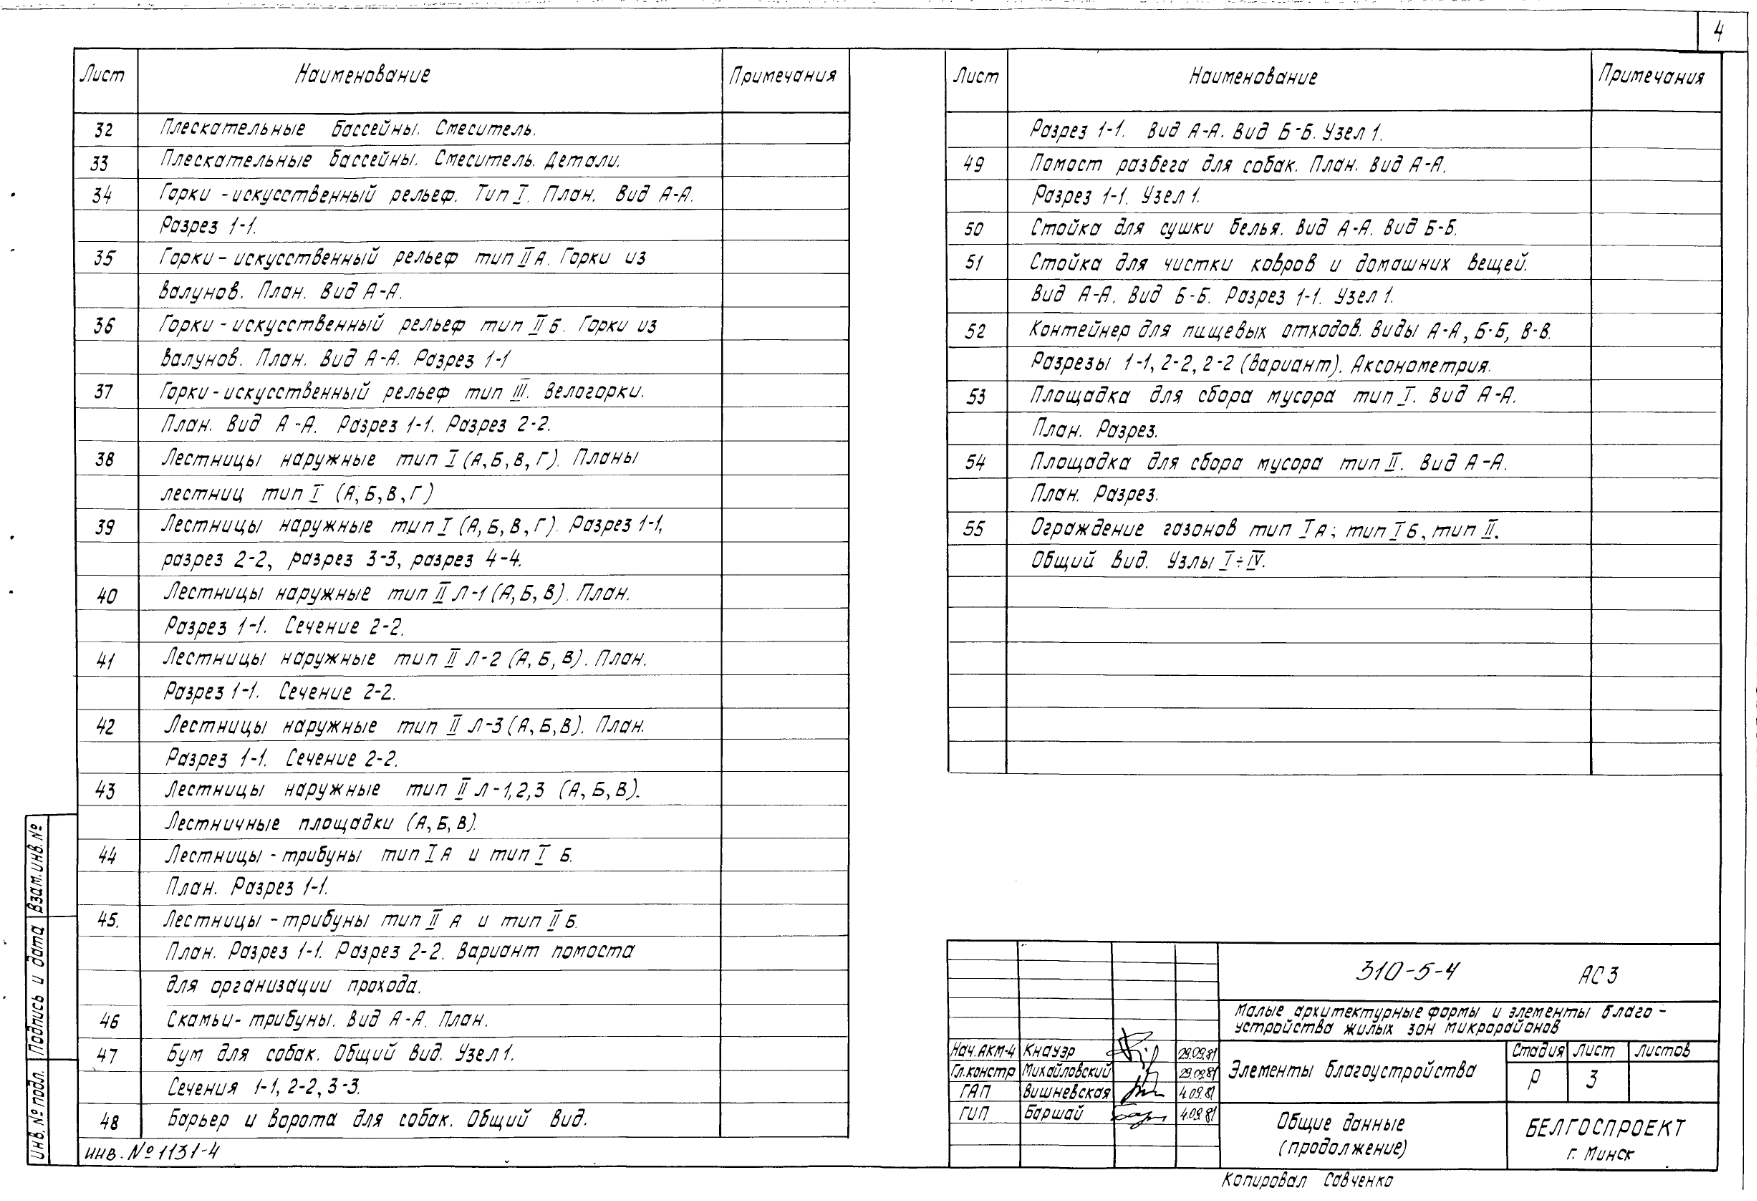 4
Лист Наименование Примечания
32 Плескательные бассейны. Смеситель.
33 Плескательные бассейны. Смеситель. Детали.
34 Горки - искусственный рельеф. Тип I. План. Вид А-А.
Разрез 1-1.
35 Горки - искусственный рельеф тип II А. Горки из
валунов. План. Вид А-А.
36 Горки - искусственный рельеф тип II Б. Горки из
валунов. План. Вид А-А. Разрез 1-1
37 Горки - искусственный рельеф тип III. Велогорки.
План. Вид А-А. Разрез 1-1. Разрез 2-2.
38 Лестницы наружные тип I (А, Б, В, Г). Планы
лестниц тип I (А, Б, В, Г)
39 Лестницы наружные тип I (А, Б, В, Г). Разрез 1-1,
разрез 2-2, разрез 3-3, разрез 4-4.
40 Лестницы наружные тип II Л-1 (А, Б, В). План.
Разрез 1-1. Сечение 2-2.
41 Лестницы наружные тип II Л-2 (А, Б, В). План.
Разрез 1-1. Сечение 2-2.
42 Лестницы наружные тип II Л-3 (А, Б, В). План.
Разрез 1-1. Сечение 2-2.
43 Лестницы наружные тип II Л-1,2,3 (А, Б, В).
Лестничные площадки (А, Б, В).
44 Лестницы - трибуны тип I А и тип I Б.
План. Разрез 1-1.
45. Лестницы - трибуны тип II А и тип II Б.
План. Разрез 1-1. Разрез 2-2. Вариант помоста
для организации прохода.
46 Скамьи - трибуны. Вид А-А. План.
47 Бум для собак. Общий вид. Узел 1.
Сечения 1-1, 2-2, 3-3.
48 Барьер и ворота для собак. Общий вид.
инв. № 1131-4
Взам. инв. №
Подпись и дата
Инв. № подл.
Лист Наименование Примечания
Разрез 1-1. Вид А-А. Вид Б-Б. Узел 1.
49 Помост разбега для собак. План. Вид А-А.
Разрез 1-1. Узел 1.
50 Стойка для сушки белья. Вид А-А. Вид Б-Б.
51 Стойка для чистки ковров и домашних вещей.
Вид А-А. Вид Б-Б. Разрез 1-1. Узел 1.
52 Контейнер для пищевых отходов. Виды А-А, Б-Б, В-В.
Разрезы 1-1, 2-2, 2-2 (вариант). Аксонометрия.
53 Площадка для сбора мусора тип I. Вид А-А.
План. Разрез.
54 Площадка для сбора мусора тип II. Вид А-А.
План. Разрез.
55 Ограждение газонов тип I А; тип I Б, тип II.
Общий вид. Узлы I÷IV.
310-5-4 АС3
Малые архитектурные формы и элементы благо-
устройства жилых зон микрорайонов
Нач. АКМ-4 Кнауэр 29.09.81
Гл. констр Михайловский 29.09.81
ГАП Вишневская 4.09.81
ГИП Баршай 4.09.81
Элементы благоустройства
Стадия Лист Листов
Р 3
Общие данные
(продолжение)
БЕЛГОСПРОЕКТ
г. Минск
Копировал Савченко